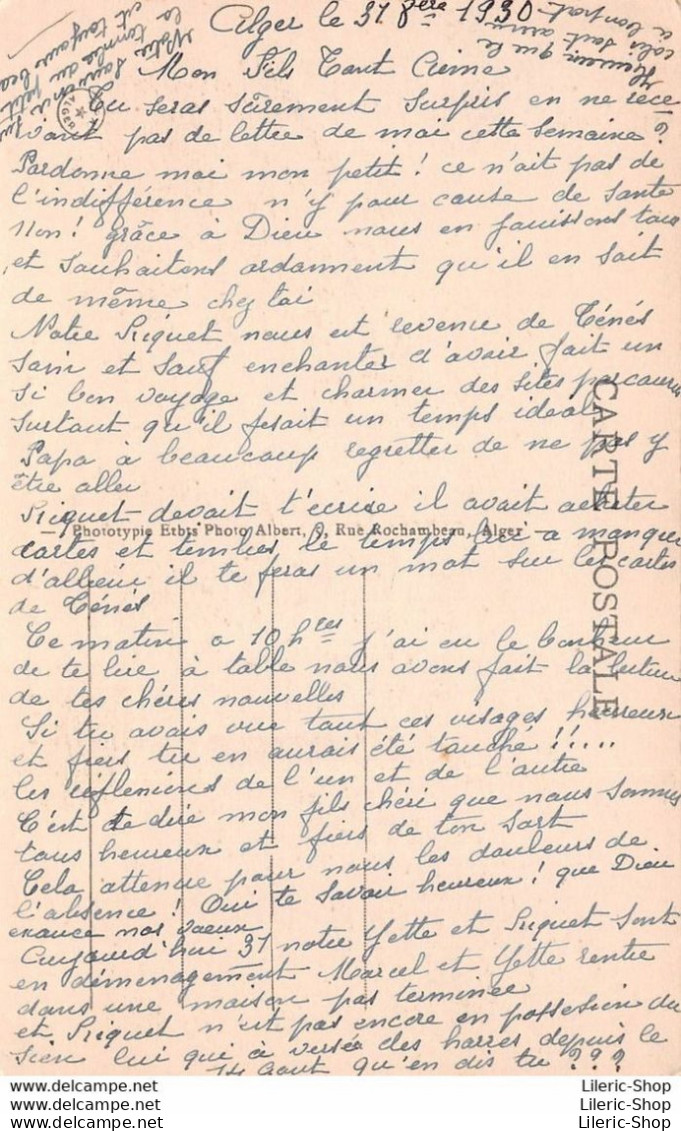 Alger le 31 8bre 1930
Mon Fils Tant Aimé
Tu seras sûrement surpris en ne rece
vant pas de lettre de moi cette semaine
Pardonne moi mon petit ! ce n'ait pas de
l'indifférence n'y pour cause de santé
Non ! grâce à Dieu nous en jouissons tous
et souhaitons ardamment qu'il en soit
de même chez toi
Notre Riquet nous est revenue de Ténés
Sain et Sauf enchanter d'avoir fait un
si bon voyage et charmer des sites parcourus
surtout qu'il fesait un temps ideal
Papa à beaucoup regretter de ne pas y
être aller
Riquet devait t'ecrire il avait acheter
cartes et timbres le temps lui a manquer
d'ailleur il te feras un mot sur les cartes
de Ténés
Ce matin a 10 hres j'ai eu le bonheur
de te lire à table nous avons fait la lecture
de tes chéres nouvelles
Si tu avais vue tout ces visages heureux
et fiers tu en aurais été touché !!....
les réflexions de l'un et de l'autre
C'est te dire mon fils chéri que nous sommes
tous heureux et fiers de ton sort
Cela attenue pour nous les douleurs de
l'absence ! Oui te savoir heureux ! que Dieu
exauce nos voeux
Aujourd'hui 31 notre Yette et Riquet sont
en déménagement Marcel et Yette rentre
dans une maison pas terminée
et Riquet n'est pas encore en possesion du
sien lui qui à versée des harres depuis le
14 Aout qu'en dis tu ???
Notre
la tombe du petit
et toujours
que le
colis soit arrivé
à bon port
ALGER
CARTE POSTALE
Phototypie Etbts Photo Albert, 9, Rue Rochambeau, Alger
www.delcampe.net
www.delcampe.net
www.delcampe.net
Lileric-Shop
Lileric-Shop
Lileric-Shop